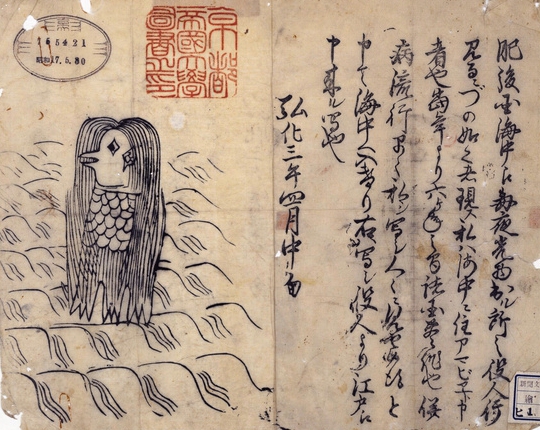 肥後国海中え毎夜光物出ル所之役人行
見るニづの如く者現ス私ハ海中ニ住アマビヱト申
者也当年より六ヶ年之間諸国豊作也併
病流行早々私シ写シ人々ニ見セ候得と
申て海中へ入けり右写シ役人より江戸え
申来ル写也
弘化三年四月中旬
京都
帝國大學
圖書之印
昭和17.5.30